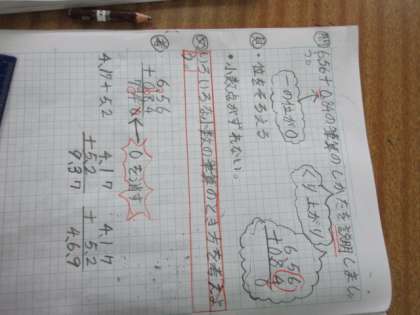 問 6.56+0.84の筆算のしかたを説明しましょう。
一の位が0
くり上がり
6.56
+0.84
0
見・位をそろえる
・小数点がずれない。
め いろいろな小数の筆算のとき方を考えよう。
考
6.56
+0.84
7.40
←0を消す
4.17+5.2
4.17
+5.2
9.37
4.17
+5.2
4.69